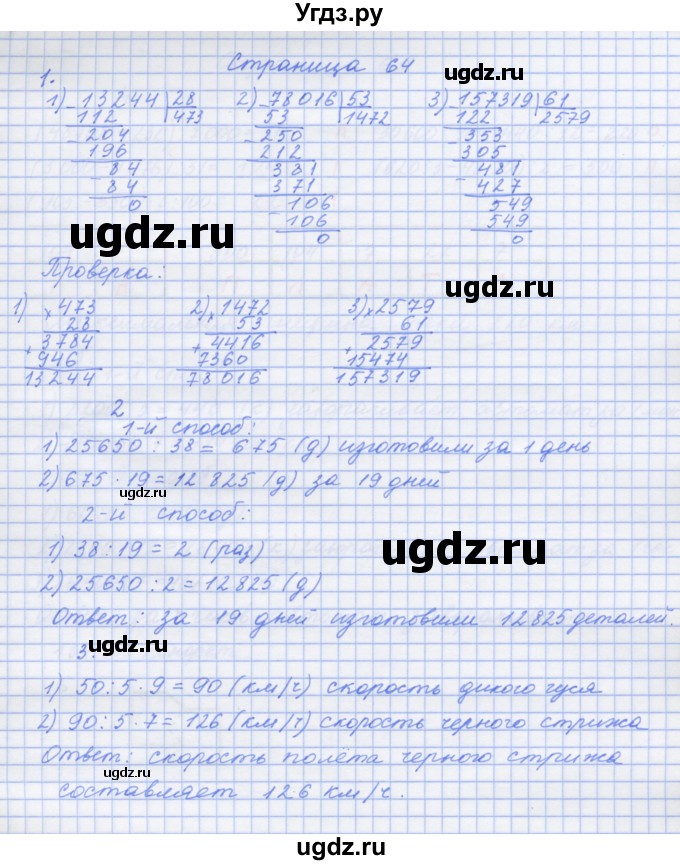 Угдз.ру
Страница 64
1.
1) 13244 | 28 2) 78016 | 53 3) 157319 | 61
112 473 53 1472 122 2579
204 250 353
196 212 305
84 381 481
84 371 427
0 106 549
106 549
0 0
Проверка:
1) × 473 2) × 1472 3) × 2579
28 53 61
+ 3784 + 4416 + 2579
946 7360 15474
13244 78016 157319
2
1-й способ:
1) 25650 : 38 = 675 (д) изготовили за 1 день
2) 675 · 19 = 12 825 (д) за 19 дней
2-й способ:
1) 38 : 19 = 2 (раз)
2) 25650 : 2 = 12825 (д)
Ответ: за 19 дней изготовили 12825 деталей.
3.
1) 50 : 5 · 9 = 90 (км/ч) скорость дикого гуся
2) 90 : 5 · 7 = 126 (км/ч) скорость черного стрижа
Ответ: скорость полёта черного стрижа
составляет 126 км/ч.
ugdz.ru
ugdz.ru
ugdz.ru
ugdz.ru
ugdz.ru
ugdz.ru
ugdz.ru
ugdz.ru
ugdz.ru
ugdz.ru
ugdz.ru